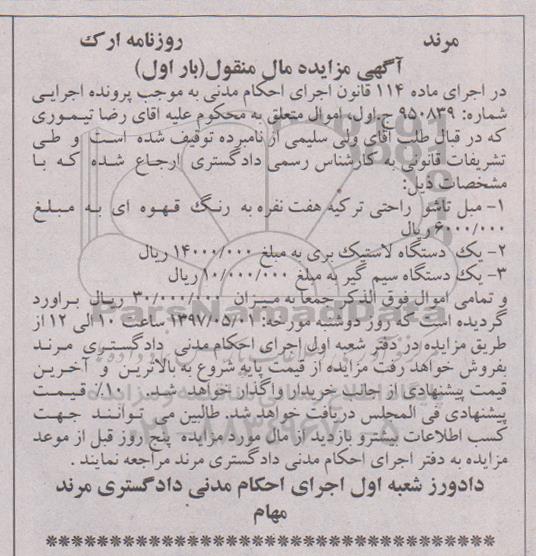 مرند روزنامه ارک
آگهی مزایده مال منقول(بار اول)
در اجرای ماده ۱۱۴ قانون اجرای احکام مدنی به موجب پرونده اجرایی
شماره: ۹۵۰۸۳۹ ج.اول، اموال متعلق به محکوم علیه اقای رضا تیموری
که در قبال طلب آقای ولی سلیمی از نامبرده توقیف شده است و طی
تشریفات قانونی به کارشناس رسمی دادگستری ارجاع شده که با
مشخصات ذیل:
۱- مبل تاشو راحتی ترکیه هفت نفره به رنگ قهوه ای به مبلغ
۶۰۰۰/۰۰۰ ریال
۲- یک دستگاه لاستیک بری به مبلغ ۱۴۰۰۰/۰۰۰ ریال
۳- یک دستگاه سیم گیر به مبلغ ۱۰/۰۰۰/۰۰۰ ریال
و تمامی اموال فوق الذکر جمعا به میزان ۳۰/۰۰۰/۰۰۰ ریال براورد
گردیده است که روز دوشنبه مورخه: ۱۳۹۷/۰۵/۰۱ ساعت ۱۰ الی ۱۲ از
طریق مزایده در دفتر شعبه اول اجرای احکام مدنی دادگستری مرند
بفروش خواهد رفت مزایده از قیمت پایه شروع به بالاترین و آخرین
قیمت پیشنهادی از جلب خریدار واگذار خواهد شد. ۱۰٪ قیمت
پیشنهادی فی المجلس دریافت خواهد شد. طالبین می توانند جهت
کسب اطلاعات بیشترو بازدید از مال مورد مزایده پنج روز قبل از موعد
مزایده به دفتر اجرای احکام مدنی دادگستری مرند مراجعه نمایند.
دادورز شعبه اول اجرای احکام مدنی دادگستری مرند
مهام
ParsNamadData
۰۲۱-۸۸۳۴۹۶۷۰-۵